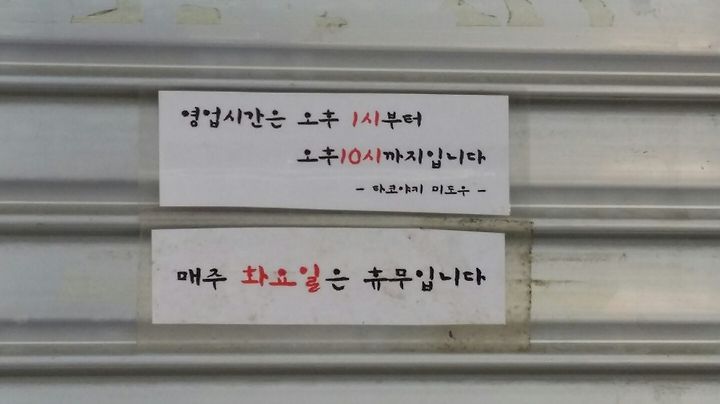 영업시간은 오후 1시부터
오후10시까지입니다
- 타코야키 미도우 -
매주 화요일은 휴무입니다